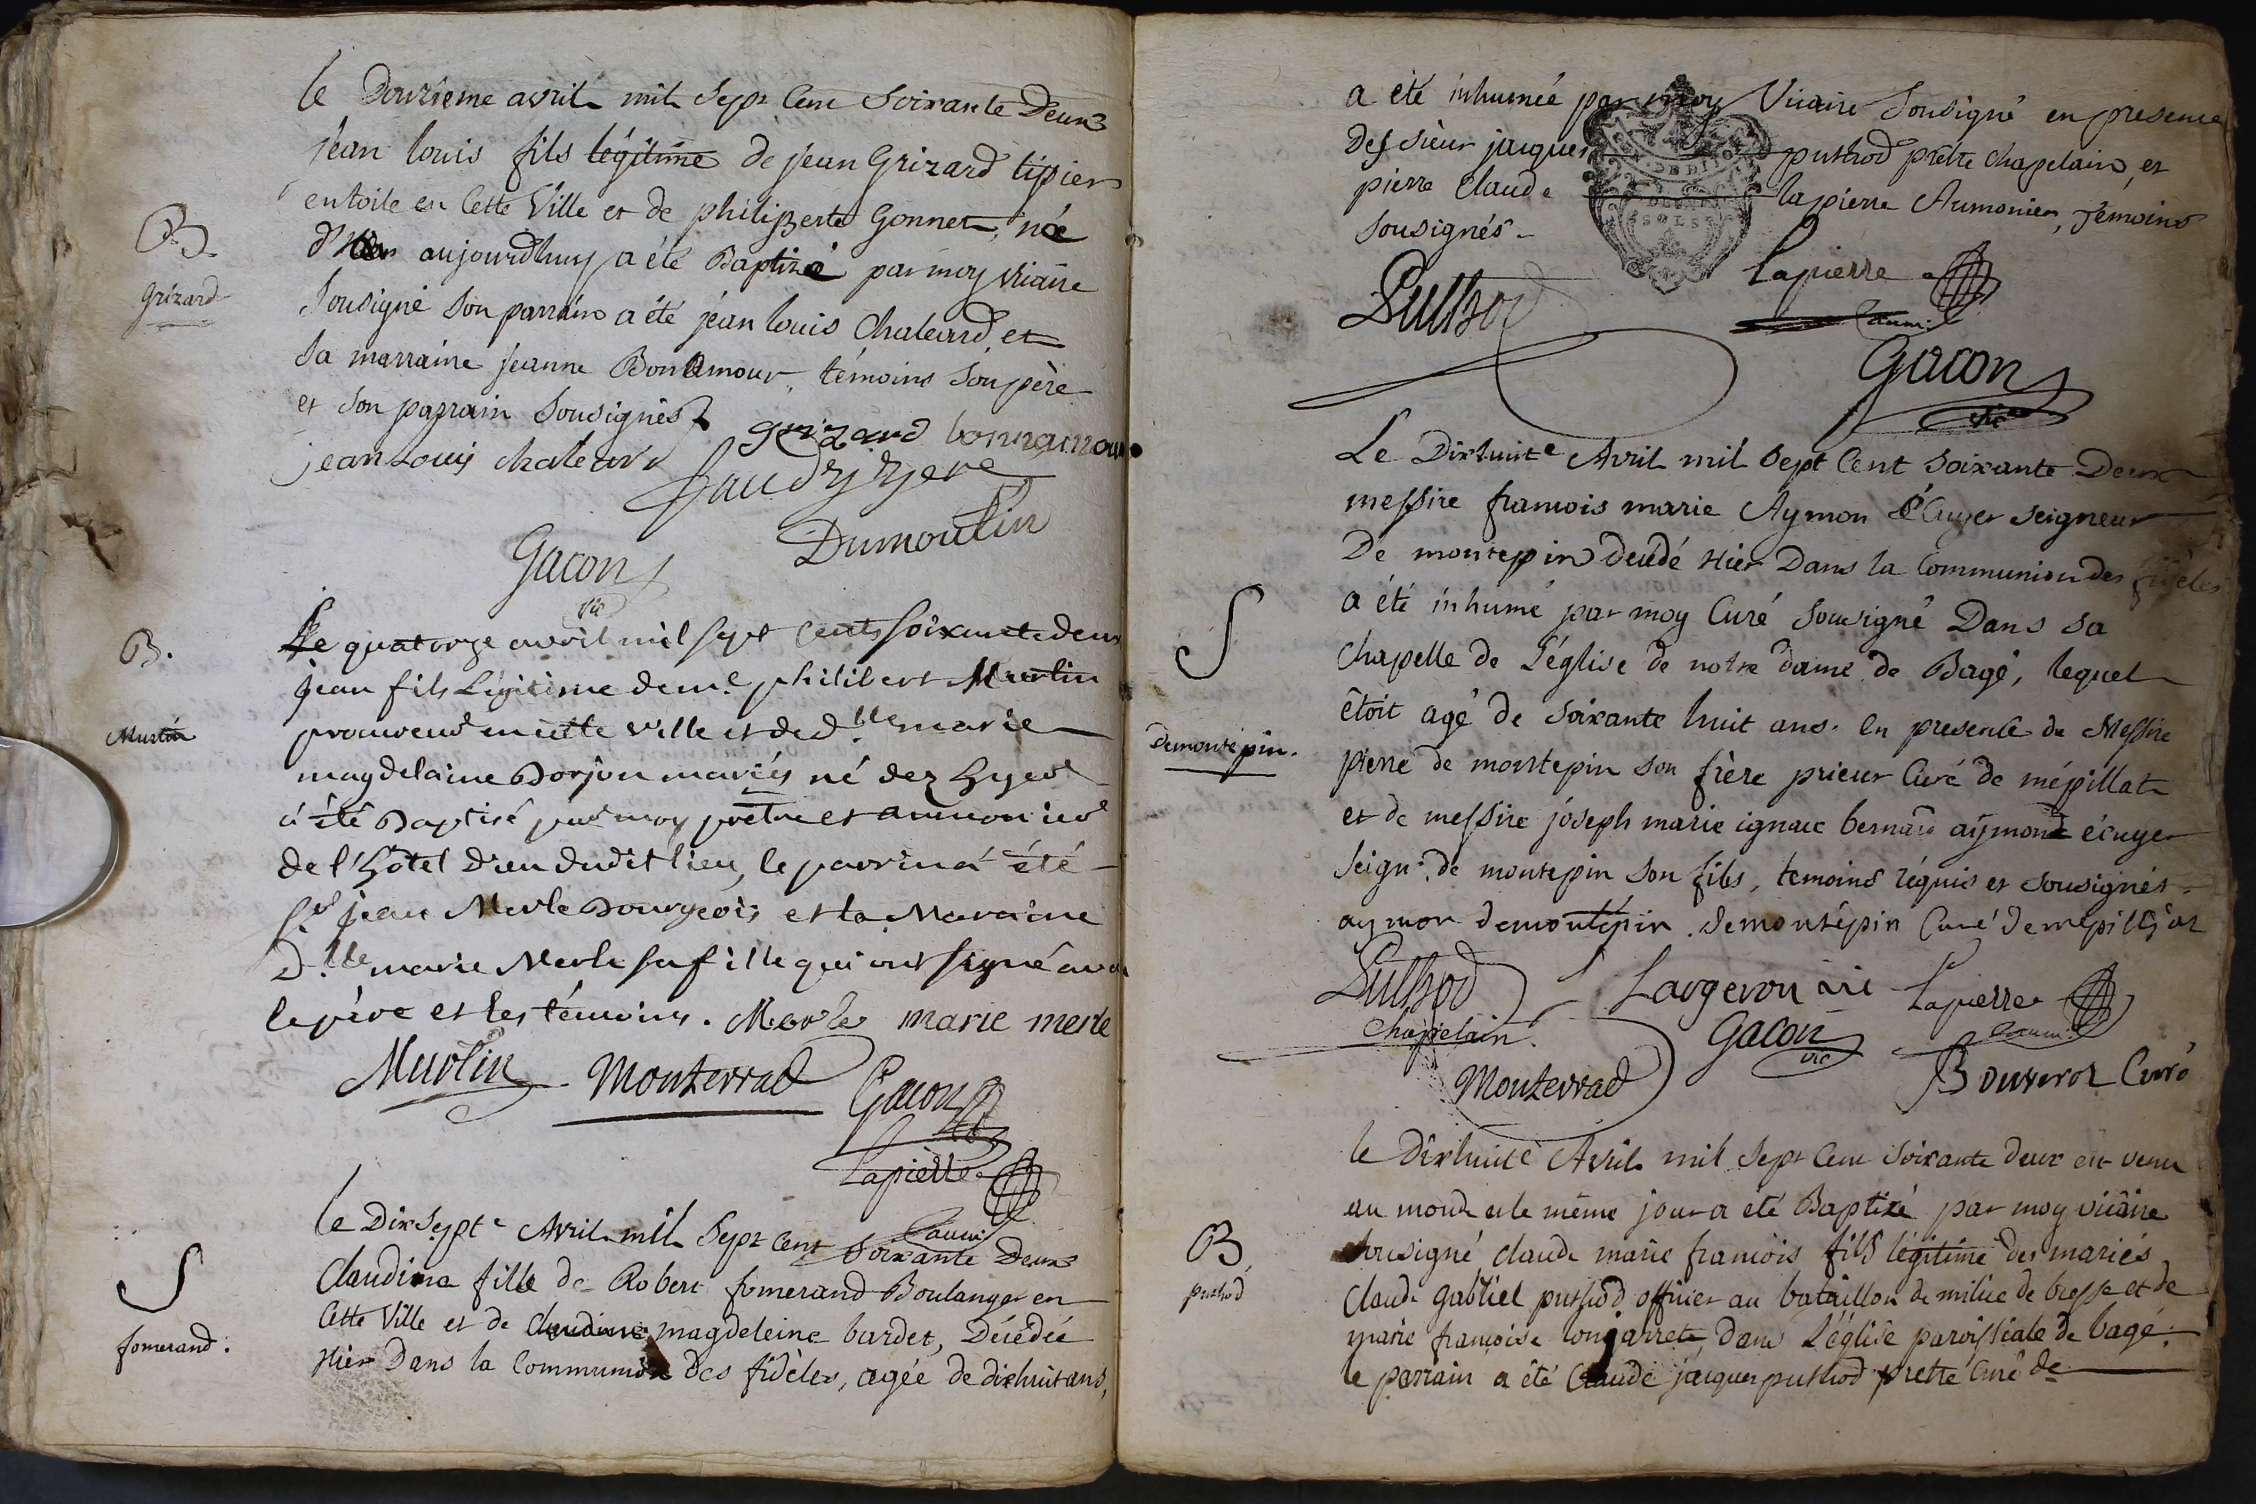 le Douzieme avril mil Sept Cent Soixante Deux
jean louis fils légitime de jean Grizard tipier
en toile en Cette Ville et de philiberte Gonnet, né
aujourdhuy a été Baptizé par moy viçaire
B.
grizard
Sousigné son parrain a été jéan louis Chaleard et
sa marraine jeanne Bonamour, témoins son père
et son parrain Sousignés
grizard bonnamour
jean Louis chaleard
Dumoulin
Gacon
vic
Le quatorze avril mil sept cents soixante deux
B.
jean fils Légitime de m.e philibert Murlin
Murlin
procureur en cette ville et de d.lle marie
magdelaine Dorjon mariés né dez hyer
a été Baptisé par moy prêtre et aumonier
de l'hôtel Dieu dudit lieu, le parrin a été
S.r jean Merle Bourgeois et la Maraine
D.lle marie Merle sa fille qui ont signé avec
le père et les témoins. Merle marie merle
Murlin Monterrad Gacon
Lapierre
aum.
le Dix Sept.e Avril mil Sept Cent Soixante Deux
S
Claudina fille de Robert fomerand Boulanger en
fomerand.
Cette Ville et de claudine magdeleine bardet, Décédée
Hier Dans la Communion des fidèles, agée de dixhuit ans,
a été inhumée par moy Vicaire Sousigné en presence
Des sieur jacques puthod prêtre chapelain, et
pierre Claude lapierre Aumonier, Témoins
sousignés.
Puthod
Lapierre
aum.
Gacon
vic
Le Dixhuit.e Avril mil Sept Cent Soixante Deux
messire francois marie Aymon Ecuyer Seigneur
De montepin décédé Hier Dans la Communion des fidèles
S
a été inhumé par moy Curé Sousigné Dans sa
Chapelle de L'église de notre dame de Bagé, lequel
étoit agé de Soixante huit ans. En presence de Messire
Demontépin.
pierre de montepin son frère prieur Curé de mépillat
et de messire joseph marie ignace bernard aymond écuyer
seign.r de montepin son fils, temoins réquis et sousignés.
aymon demontépin. demontépin Curé de mépilliat
Puthod Largeron vic Lapierre
Chapelain Gacon aum.
vic
Monterrad Bouverot Curé
le Dixhuit.e Avril mil Sept Cent Soixante deux est venu
au monde et le même jour a été Baptizé par moy vicaire
B
Sousigné claude marie francois fils légitime des mariés
puthod
Claude Gabriel puthod officier au bataillon de milice de bresse et de
marie françoise conjarrete, Dans L'église paroissiale de bagé.
le parrain a été Claude jacques puthod prette Curé de